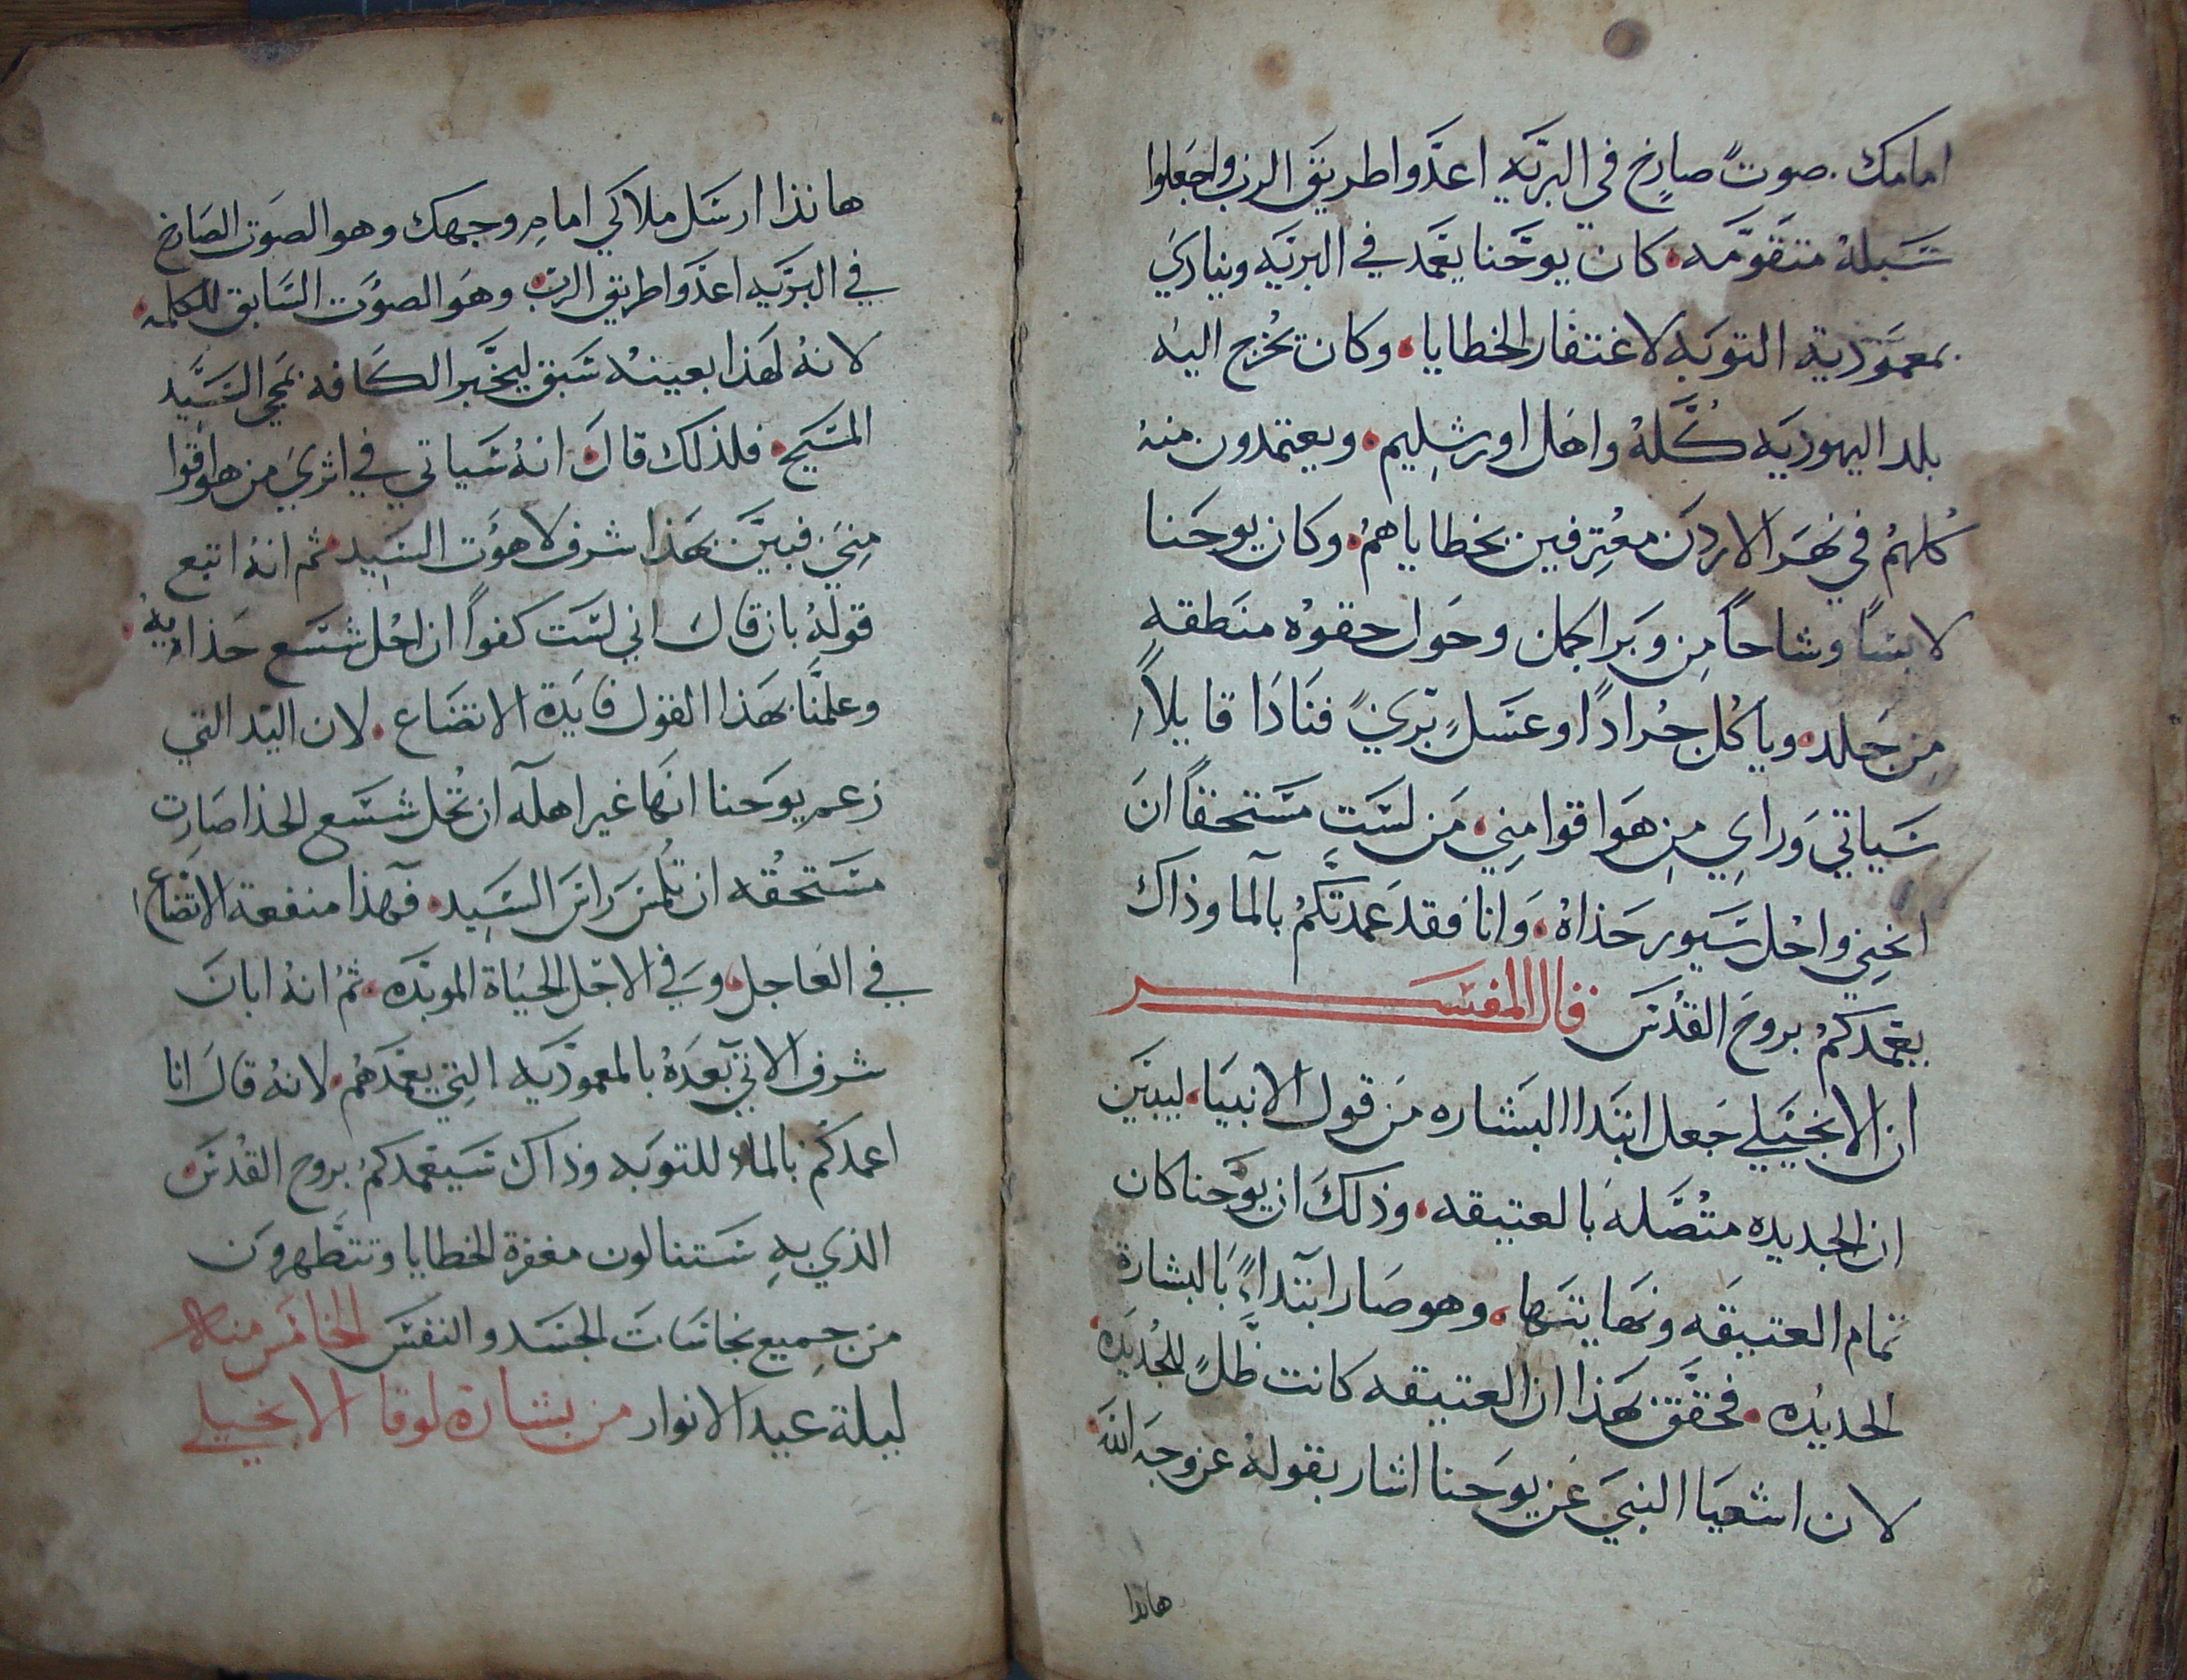 امامك. صوتً صارخ في البريَه اعدَّوا طريق الرب واجعلوا
سَبله متقوّمه. كان يوحَّنا يعَّمد في البريَه وينادي
بمعمَودية التوَبه لاغتفار الخطايا. وكان تخرج اليه
بلد اليهوديَه كُلّهُ واهَل اورشليم. ويعتمدون منهُ
كُلهُم في نهَر الاردَن معُترِفين بخطاياهُم. وكان يوحَنا
لابسًا وشاحاً مِن وَبَر الجمل وحَول حقوُه منَطقهٍ
مِن جَلد. وياكُل جرُادًا وعسَلٍ برّيٍ فنَادَا قايلاً
سَياتي وَرايِ مِن هوَ اقوا منِي. مَن لسَتِ مسَتحقاً انَ
انحنِي واحُل سَيور حَذاهُ. وَانا فقد عَمدتَّكُم بالما وذاك
يعَّمدكُمُ بروحَ القُدسَ قال المفسَر
ان الانجَيلي جَعل ابتَدا البَشاره مَن قول الانبيَا. ليبيَن
ان الجديده متُصَّلهَ بالعتيقه. وذلكَ ان يوَحنا كان
تمام العتيقَه ونهَايتَها. وهو صَار ابتدآءً بَالبشارة
الجديدُه. فحقَّق بهَذا ان العتيقه كانت ظَّلٍ للجُديدَه.
لان اشعيَا النبيَ عَن يوَحنا اشار بقولهُ عن وجَه اللهَ.
هانذا
هانذا ارسَل ملاكي امامِ وجهك وهو الصَوت الصَارخ
في البرَّيَه اعدَّوَا طريق الرب. وهوَ الصوَت السَابق للكلمه.
لانهُ لهَذا بعينهُ سَبق ليخَّبر الكَافه بمجي السَيّد
المسَيح. فلذلك قالَ. انهُ سَياتي في اثريَ مِن هوَ اقوا
منِي. فبيَّن بهَذا شرف لاهوُت السَيِد. ثم انهُ اتبع
قولهُ بان قالَ اني لسَت كفواً ان احُل شسَع حَذاءيهُ.
وعلمنَّا بهَذا القول فايَدة الاتضَاع. لان اليَد التي
زعم يوَحنا انهَا غير اهلآه ان تُحل شسَع الحذا صَارتِ
مسَتحقُه ان تُلمسَ راسَ السَيِد. فهذا منفعة الاتضَاع
في العَاجل. وَفي الاجَل الحيَاة الموبَده. ثمُ انهُ ابانَ
شرف الاتي بَعَدهُ بالمعموَديَه التِي يعمَدهُم. لانهُ قالَ انا
اعمدكَم بالماء للتوبَه وذاكَ سَيعَمدكُم بروح القُدسَ.
الذي بهِ سَتنالون مغفرة الخطايا وتتطَهروَن
مَن جمِيع نجاسَاتَ الجسَد والنفسَ الخامَس منه
ليلة عيد الانوار من بشارة لوقا الانجيلي